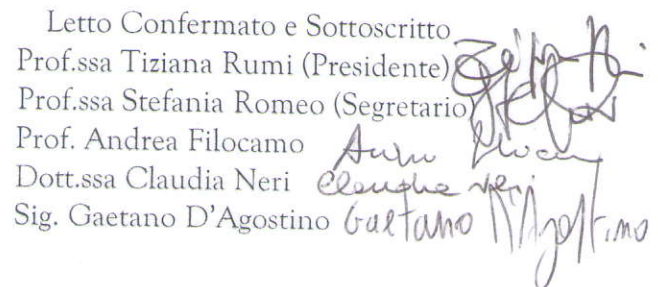 Letto Confermato e Sottoscritto
Prof.ssa Tiziana Rumi (Presidente)
Prof.ssa Stefania Romeo (Segretario)
Prof. Andrea Filocamo
Dott.ssa Claudia Neri Claudia Neri
Sig. Gaetano D'Agostino Gaetano D'Agostino